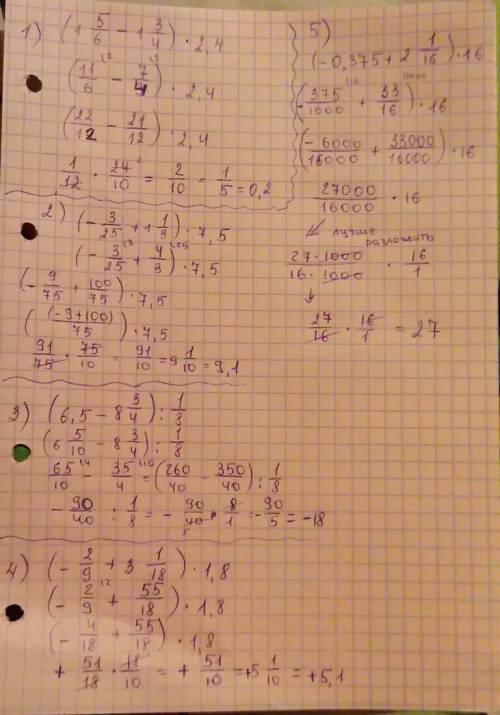 1) (1 5/6 - 1 3/4) · 2,4
(11/6 - 7/4) · 2,4
(22/12 - 21/12) · 2,4
1/12 · 24/10 = 2/10 = 1/5 = 0,2
2) (- 3/25 + 1 1/3) · 7,5
(- 3/25 + 4/3) · 7,5
(- 9/75 + 100/75) · 7,5
((-9+100)/75) · 7,5
91/75 · 75/10 = 91/10 = 9 1/10 = 9,1
3) (6,5 - 8 3/4) : 1/8
(6 5/10 - 8 3/4) : 1/8
65/10 - 35/4 = (260/40 - 350/40) : 1/8
- 90/40 : 1/8 = - 90/40 · 8/1 = - 90/5 = -18
4) (- 2/9 + 3 1/18) · 1,8
(- 2/9 + 55/18) · 1,8
(- 4/18 + 55/18) · 1,8
+ 51/18 · 18/10 = + 51/10 = +5 1/10 = +5,1
5)
(-0,375 + 2 1/16) · 16
(- 375/1000 + 33/16) · 16
(-6000/16000 + 33000/16000) · 16
27000/16000 · 16
лучше
разложить
27·1000/16·1000 · 16/1
27/16 · 16/1 = 27